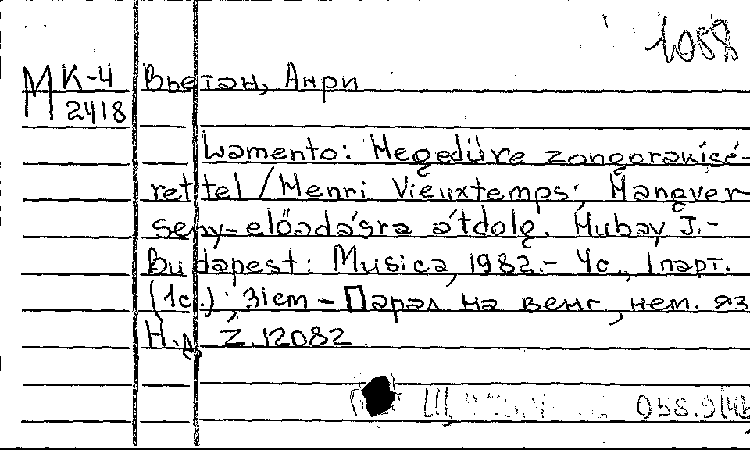 1058
М К-4
2418
Вьетан, Анри
Lamento: Hegedüre zongorakísé-
rettel / Henri Vieuxtemps; Hangver-
seny-előadásra átdolg. Hubay J.-
Budapest: Musica, 1982.- 4с., 1парт.
(1с.); 31см - Парал на венг, нем. яз
Н.д. Z.12082